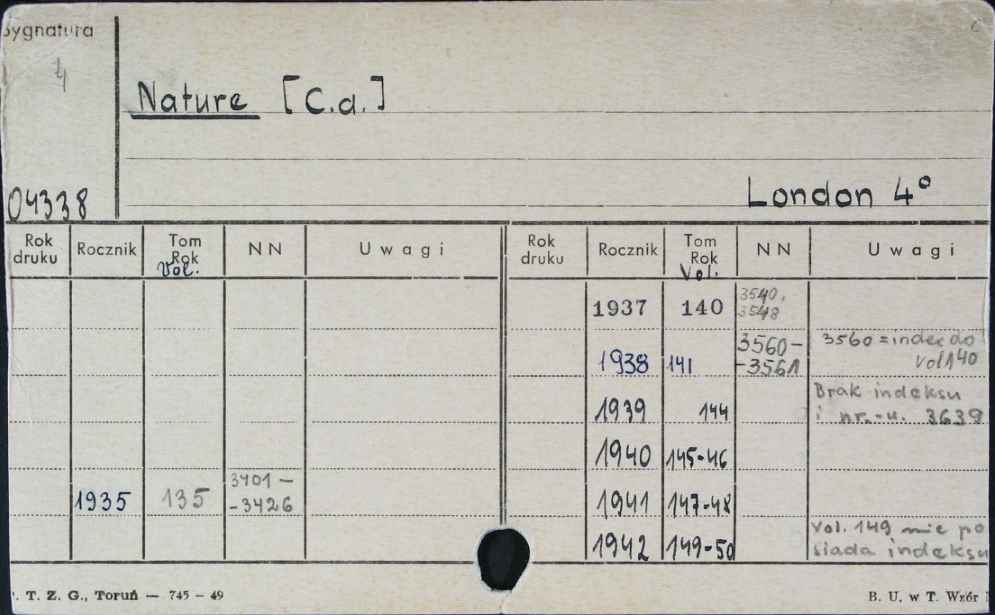 Sygnatura
4
Nature [C.a.]
04338
London 4°
Rok druku Rocznik Tom Rok Vol. NN Uwagi Rok druku Rocznik Tom Rok Vol. NN Uwagi
1937 140 3540, 3548
1938 141 3560- -3561 3560=indeks do vol 140
1939 144 Brak indeksu i nr.-u. 3639
1940 145-46
1935 135 3401- -3426 1941 147-48
1942 149-50 Vol. 149 nie posiada indeksu
. T. Z. G., Toruń — 745 – 49
B. U. w T. Wzór